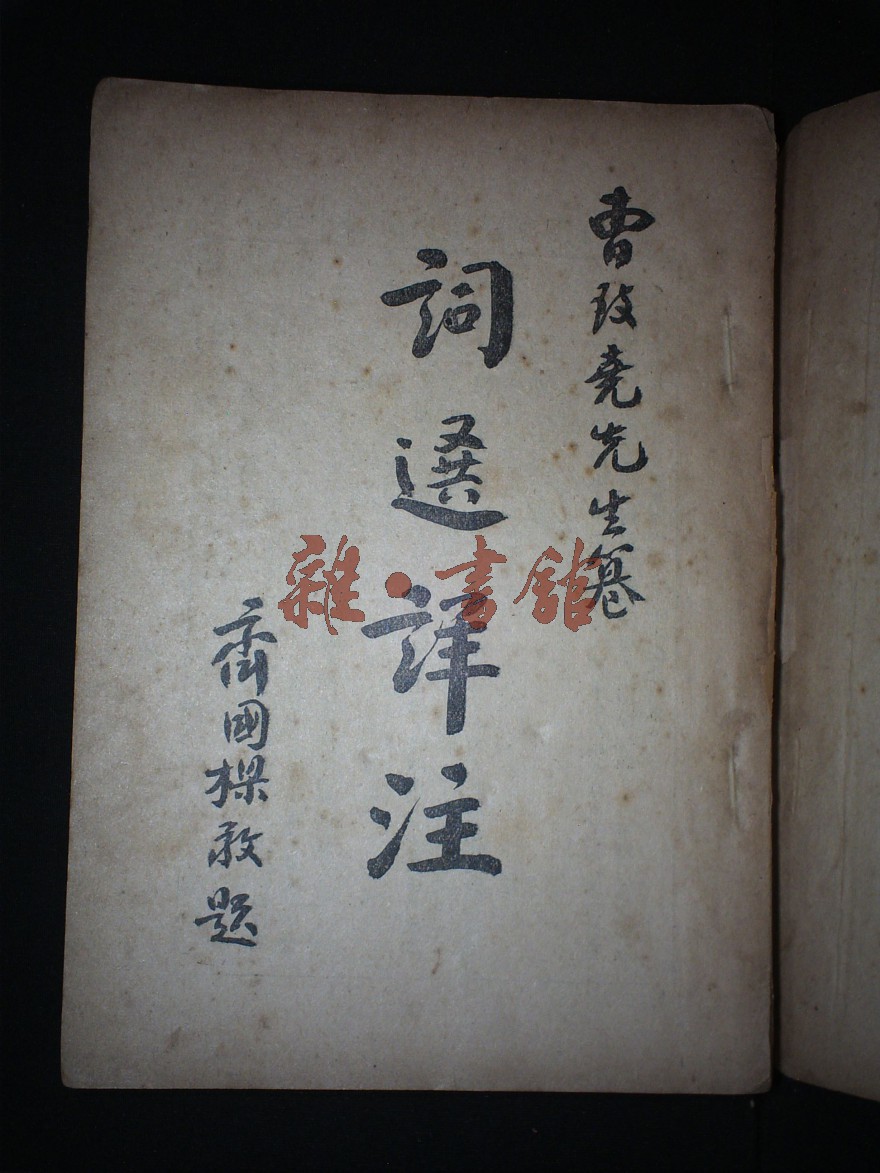 曹玫堯先生箋
詞選詳注
齊國樑敬題
雜·書館